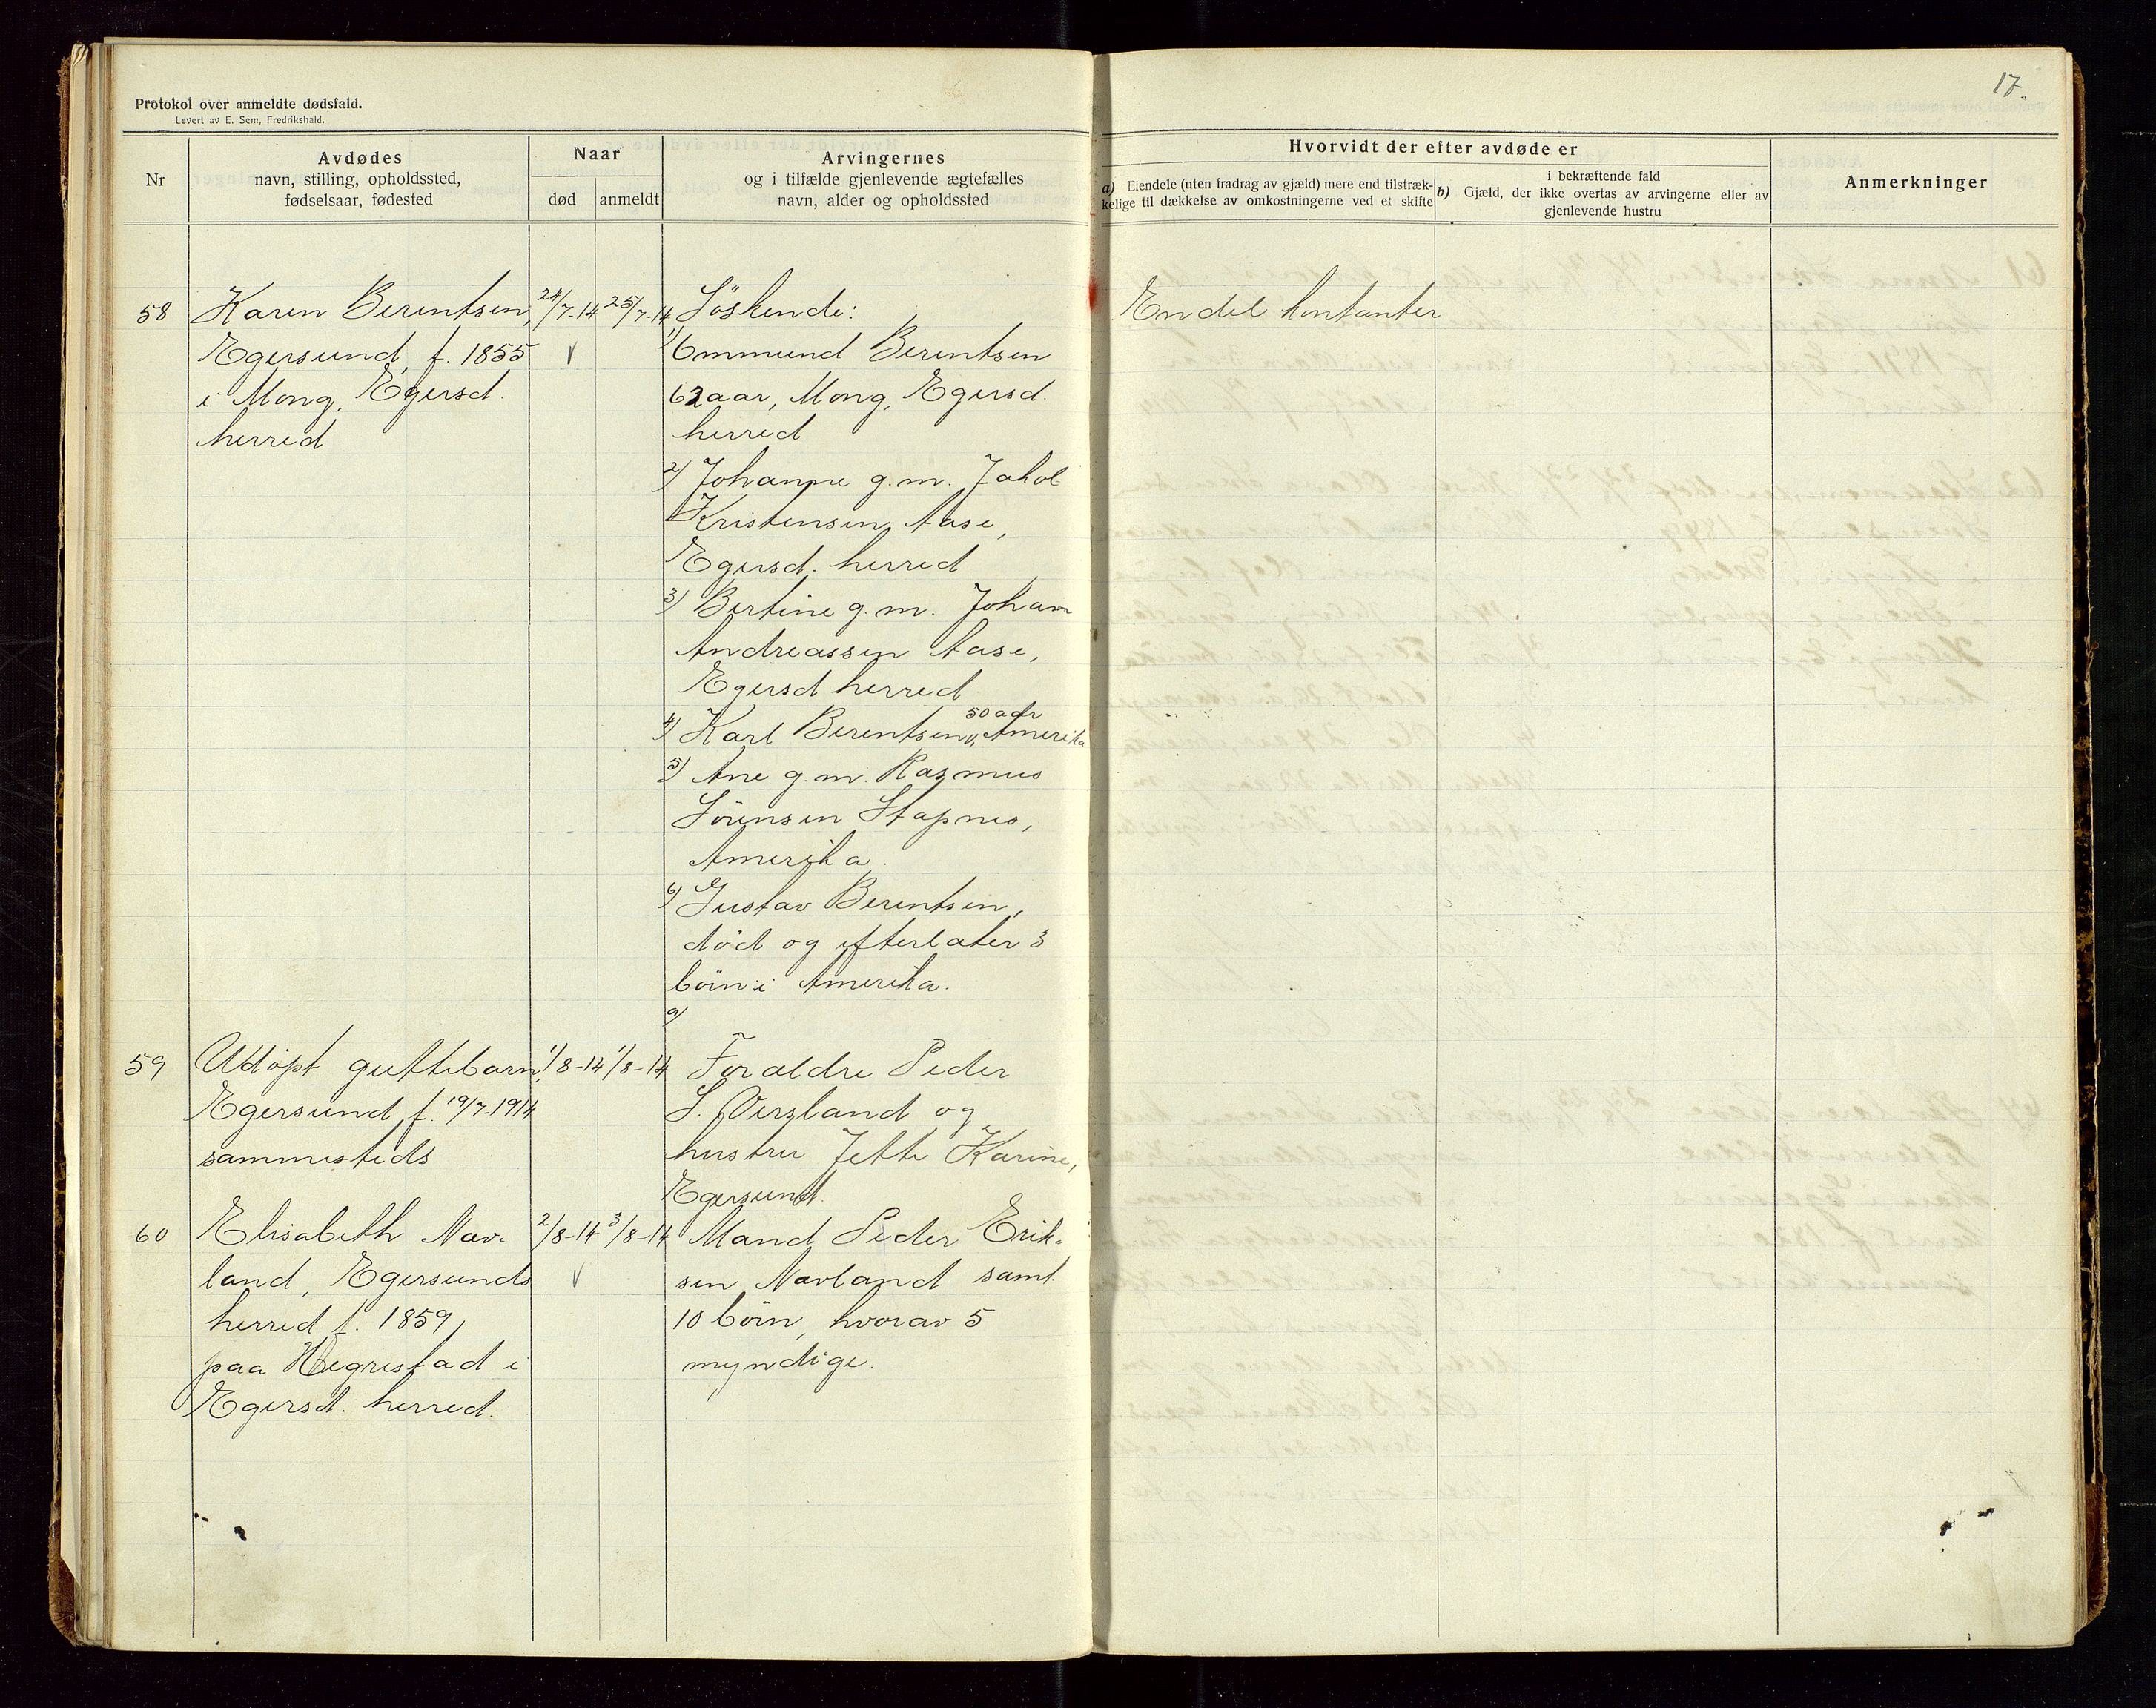 Protokol over anmeldte dødsfald.
Levert av E. Sem, Fredrikshald.
Nr
Avdødes
navn, stilling, opholdssted,
fødselsaar, fødested
Naar
død
anmeldt
Arvingernes
og i tilfælde gjenlevende ægtefælles
navn, alder og opholdssted
58
Karen Berentsen,
Egersund, f. 1855
i Mong, Egersd.
herred
24/7-14
25/7-14
Söskende:
1) Ommund Berentsen
62 aar, Mong, Egersd.
herred
2) Johanne g.m. Jakob
Kristensen Aase,
Egersd. herred
3) Bertine g.m. Johan
Andreassen Aase,
Egersd herred
50 aar
4) Karl Berentsen, Amerika
5) Ane g.m. Rasmus
Sörensen Stapnes,
Amerika.
6) Gustav Berentsen,
död og efterlater 3
börn i Amerika.
a)
59
Udöpt guttebarn,
Egersund, f. 19/7-1914
sammesteds
1/8-14
1/8-14
Foraldre Peder
S. Versland og
hustru Jette Karine,
Egersund.
60
Elisabeth Nav-
land, Egersunds
herred f. 1859,
paa Hegrestad i
Egersd. herred.
2/8-14
3/8-14
Mand Peder Erik-
sen Navland samt
10 börn, hvorav 5
myndige.
17.
Hvorvidt der efter avdøde er
a) Eiendele (uten fradrag av gjæld) mere end tilstræk-
kelige til dækkelse av omkostningerne ved et skifte
i bekræftende fald
b) Gjæld, der ikke overtas av arvingerne eller av
gjenlevende hustru
Anmerkninger
Endel kontanter